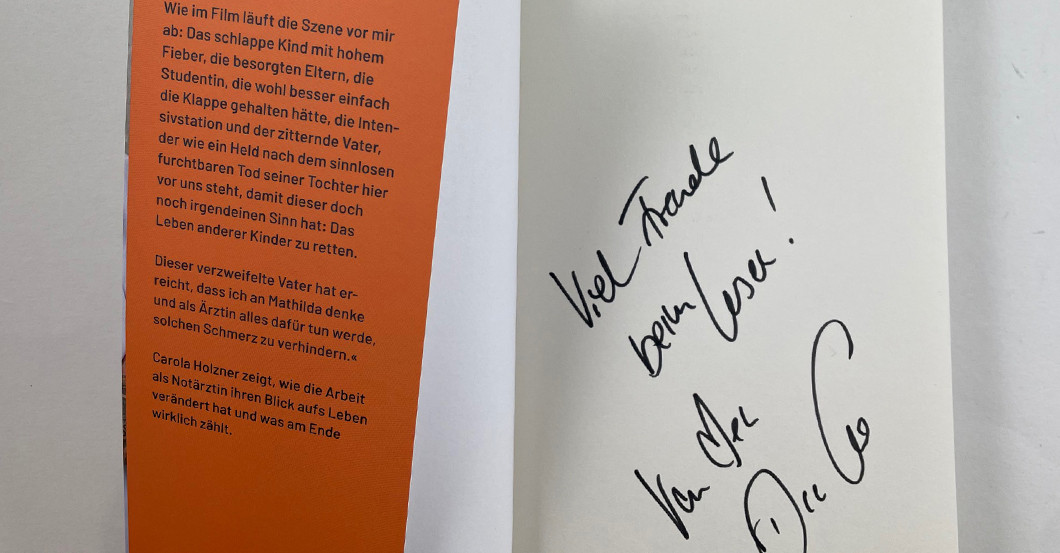 Wie im Film läuft die Szene vor mir
ab: Das schlappe Kind mit hohem
Fieber, die besorgten Eltern, die
Studentin, die wohl besser einfach
die Klappe gehalten hätte, die Inten-
sivstation und der zitternde Vater,
der wie ein Held nach dem sinnlosen
furchtbaren Tod seiner Tochter hier
vor uns steht, damit dieser doch
noch irgendeinen Sinn hat: Das
Leben anderer Kinder zu retten.
Dieser verzweifelte Vater hat er-
reicht, dass ich an Mathilda denke
und als Ärztin alles dafür tun werde,
solchen Schmerz zu verhindern.«
Carola Holzner zeigt, wie die Arbeit
als Notärztin ihren Blick aufs Leben
verändert hat und was am Ende
wirklich zählt.
Viel Freude
beim Lesen!
Von
Doc Caro